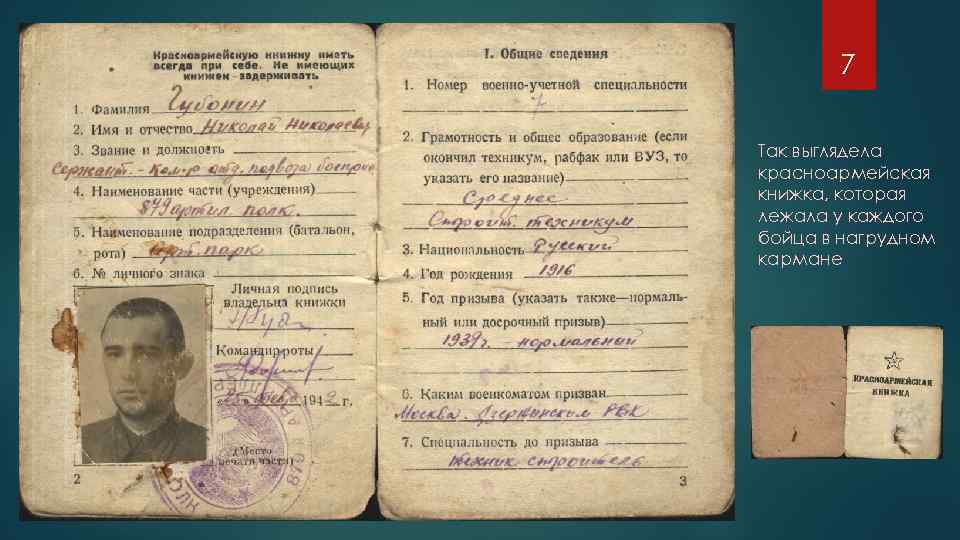 Красноармейскую книжку иметь
всегда при себе. Не имеющих
книжек - задерживать
1. Фамилия Губонин
2. Имя и отчество Николай Николаевич
3. Звание и должность
Сержант - Ком-р отд. подвоза боеприп
4. Наименование части (учреждения)
879 артил полк.
5. Наименование подразделения (батальон,
рота) арт. парк
6. № личного знака
Личная подпись
владельца книжки
Командир роты
194 2 г.
(Место
печати части)
2
I. Общие сведения
1. Номер военно-учетной специальности
7
2. Грамотность и общее образование (если
окончил техникум, рабфак или ВУЗ, то
указать его название)
Среднее
Строит. техникум
3. Национальность Русский
4. Год рождения 1916
5. Год призыва (указать также—нормаль-
ный или досрочный призыв)
1939 г. - нормальный
6. Каким военкоматом призван
Москва. Дзержинским РВК
7. Специальность до призыва
техник строитель
3
7
Так выглядела
красноармейская
книжка, которая
лежала у каждого
бойца в нагрудном
кармане
КРАСНОАРМЕЙСКАЯ
КНИЖКА